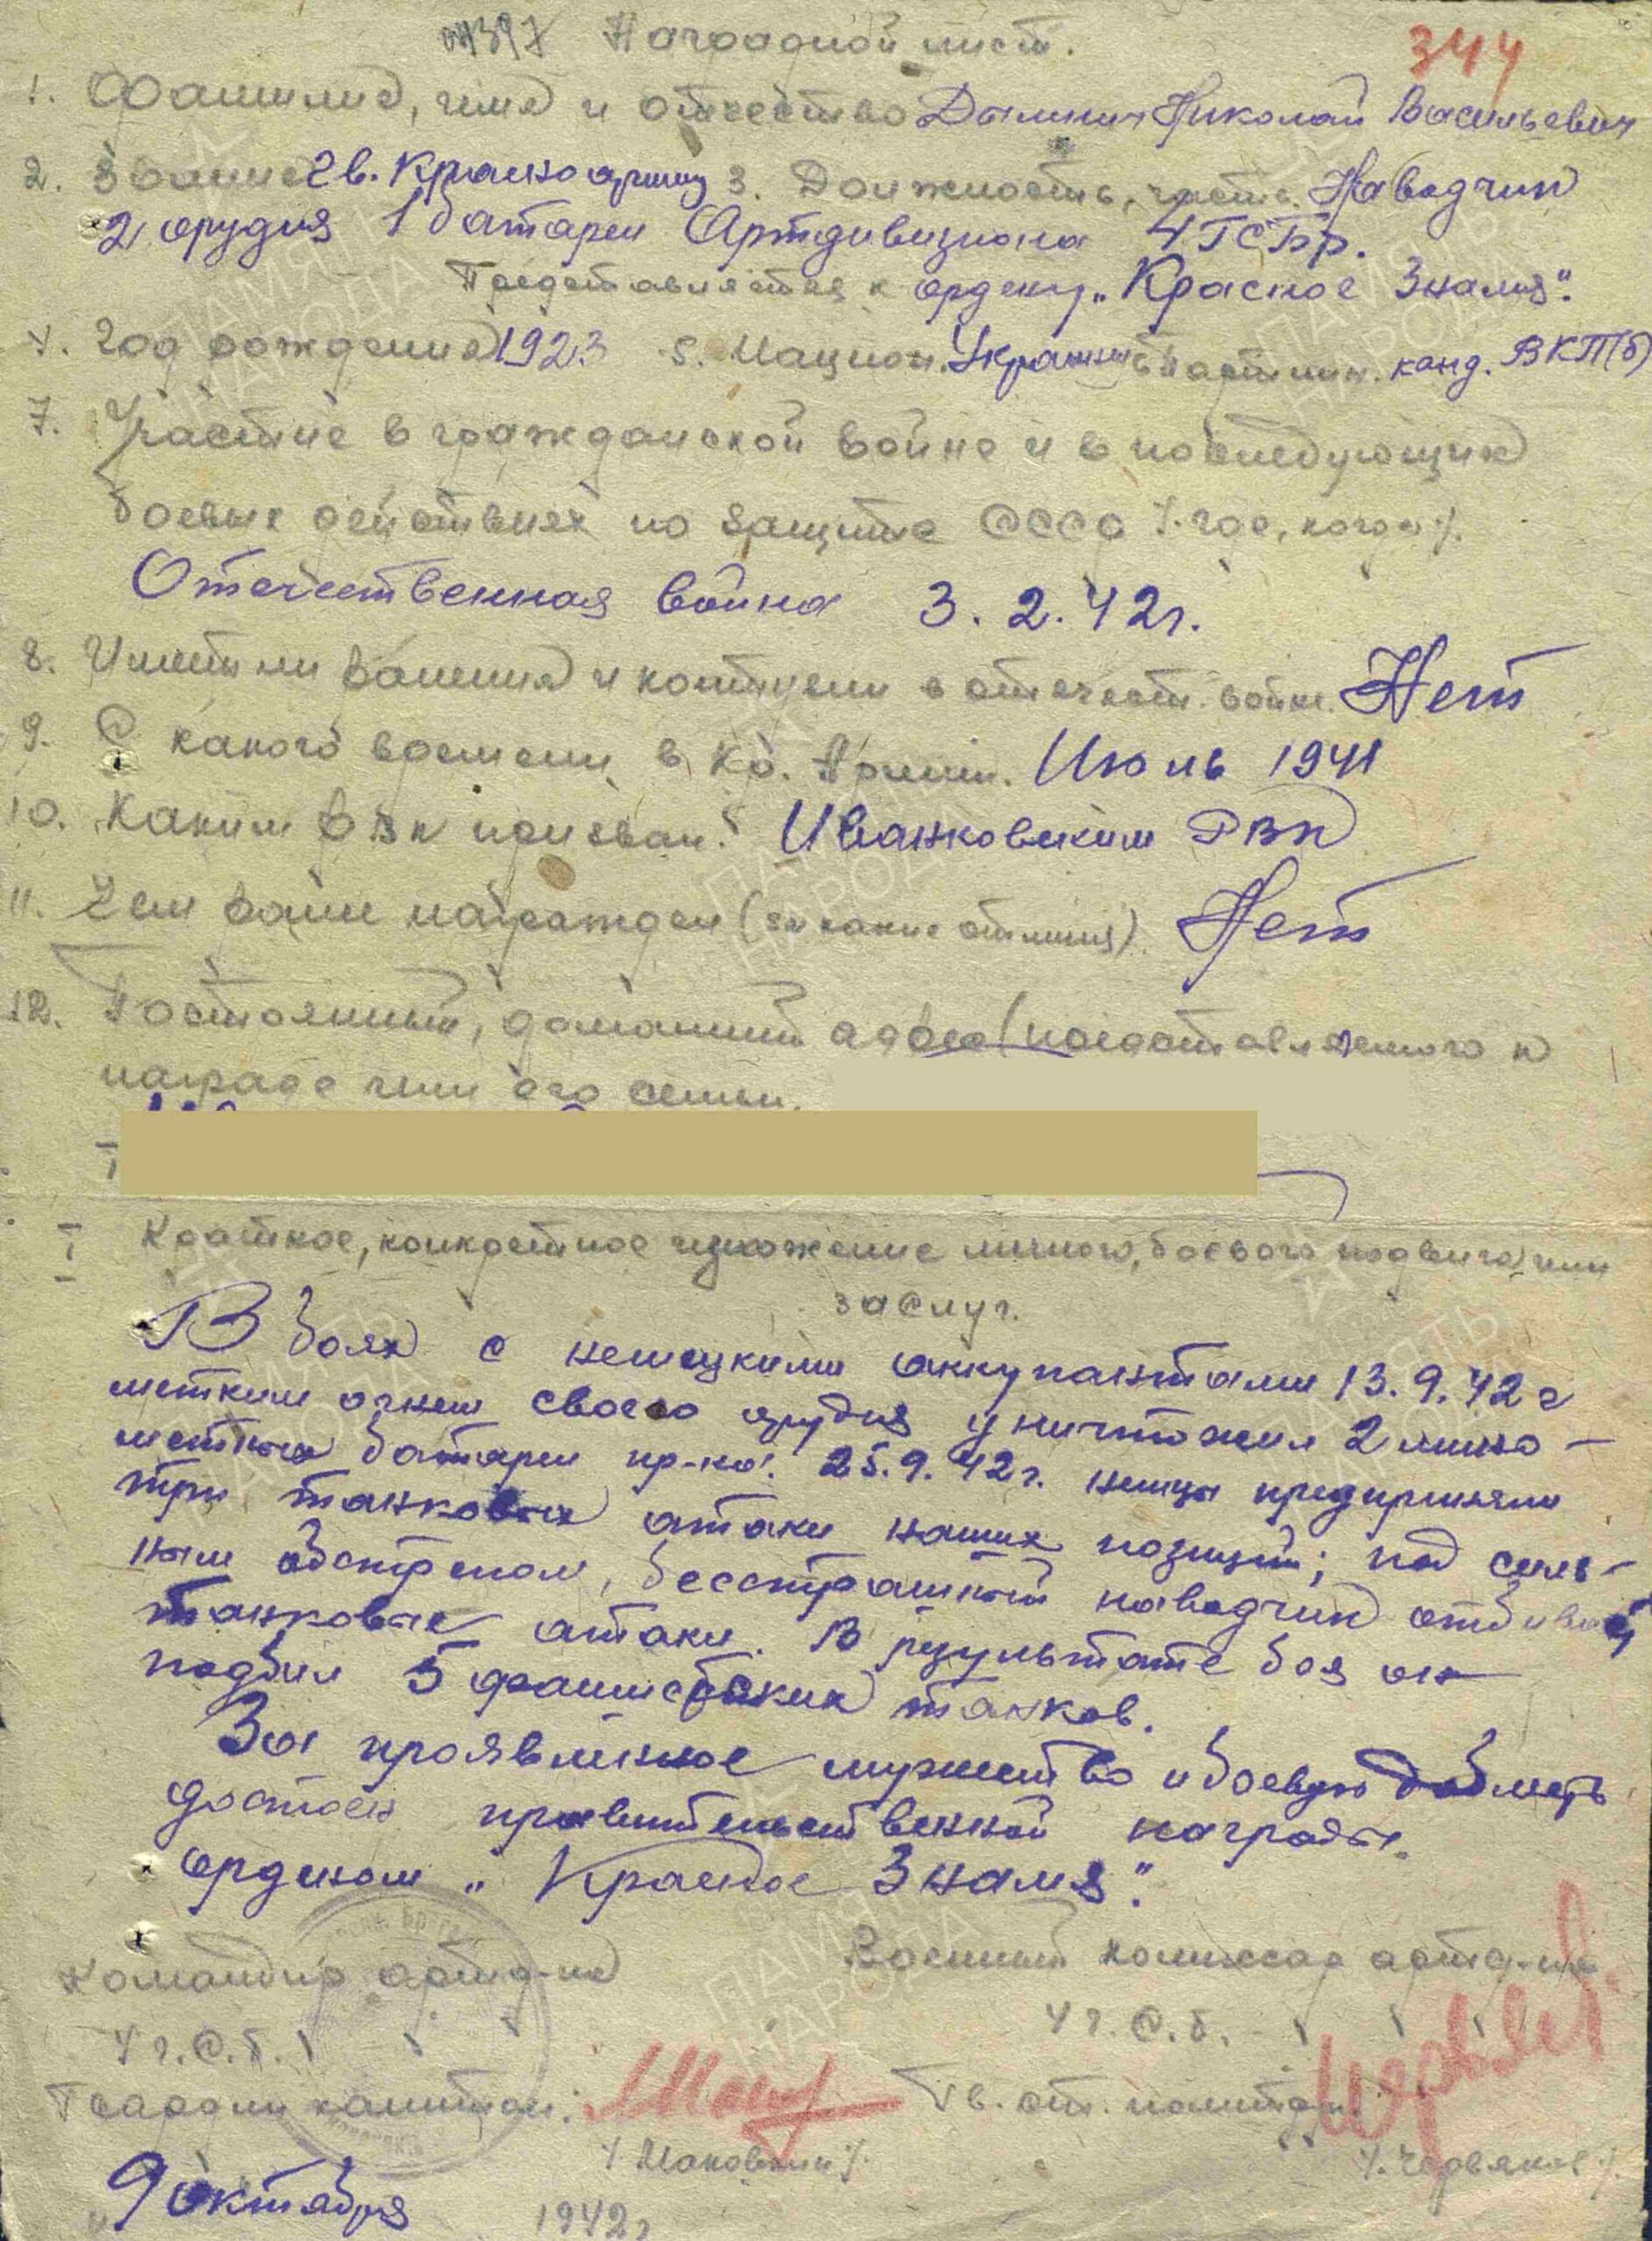 Наградной лист.
344
1. Фамилия, имя и отчество Дымнич Николай Васильевич
2. Звание Гв. Красноармеец 3. Должность, часть. Наводчик
2 орудия 1 батареи Артдивизиона 4 ГСБр.
Представляется к ордену „Красное Знамя".
4. Год рождения 1923 5. Национ. Украинец 6 Партийн. канд. ВКП(б)
7. Участие в гражданской войне и в последующих
боевых действиях по защите СССР /. где, когда /.
Отечественная война 3.2.42г.
8. Имеет ли ранения и контузии в отечест. войне. Нет
9. С какого времени в Кр. Армии. Июль 1941
10. Каким РВК призван. Иванковским РВК
11. Чем ранее награжден (за какие отличия) Нет
12. Постоянный, домашний адрес (представляемого к
награде или его семьи.
I Краткое, конкретное изложение личного, боевого подвига или
заслуг.
В боях с немецкими оккупантами 13.9.42г
метким огнем своего орудия уничтожил 2 мино-
метных батареи пр-ка. 25.9.42г. немцы предприняли
три танковых атаки наших позиций; под силь-
ным обстрелом, бесстрашный наводчик отбивал
танковые атаки. В результате боя он
подбил 5 фашистских танков.
За проявленное мужество и боевую доблесть
достоин правительственной награды
орденом „Красное Знамя".
Командир артд-на Военный комиссар артд-на
4 г.С.б. 4 г.С.б.
Гвардии капитан: Гв. ст. политрук:
/Маковский/. /.Червяков/.
9 октября 1942г